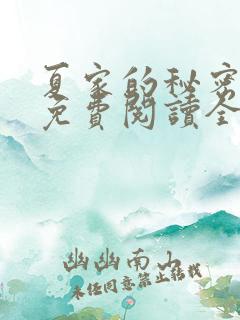 夏家的秘密
免費閱讀全
幽幽南山
未经同意禁止转载